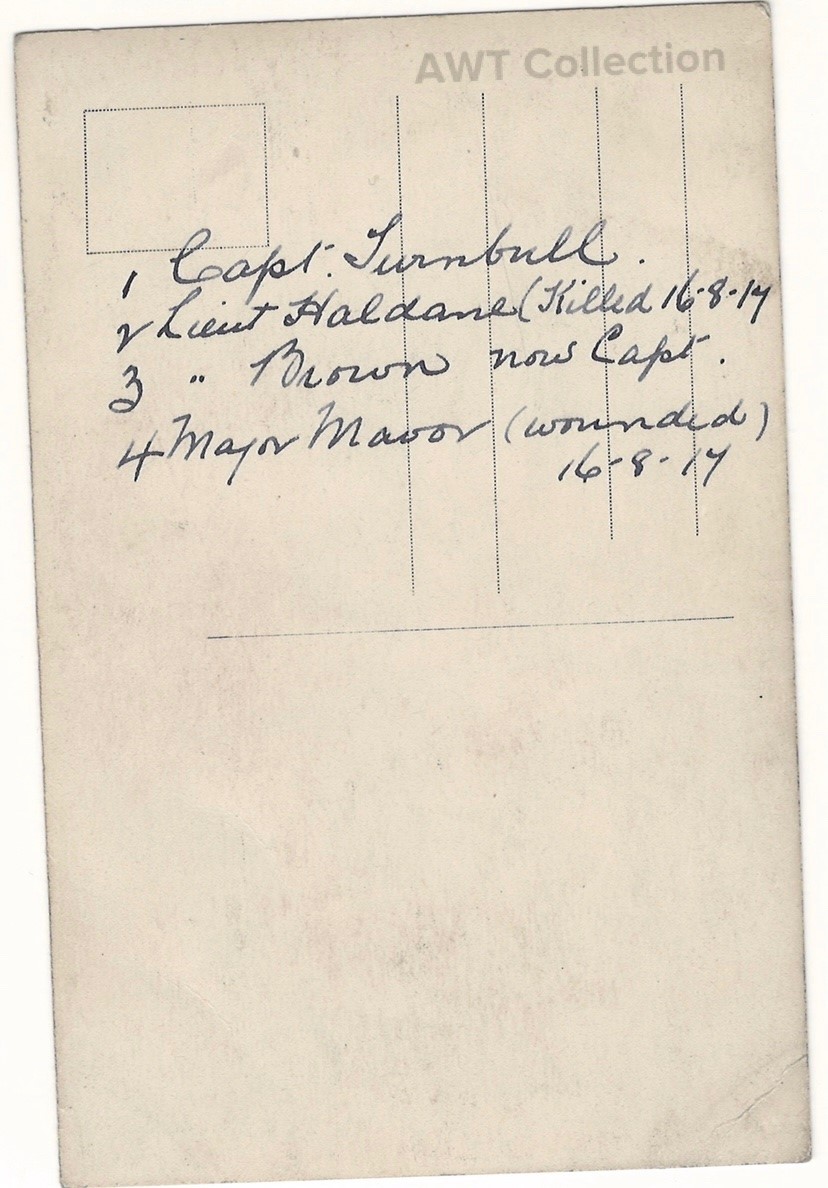 AWT Collection
1 Capt. Turnbull.
2 Lieut Haldane (Killed 16-8-17
3 " Brown now Capt.
4 Major Mavor (wounded)
16-8-17